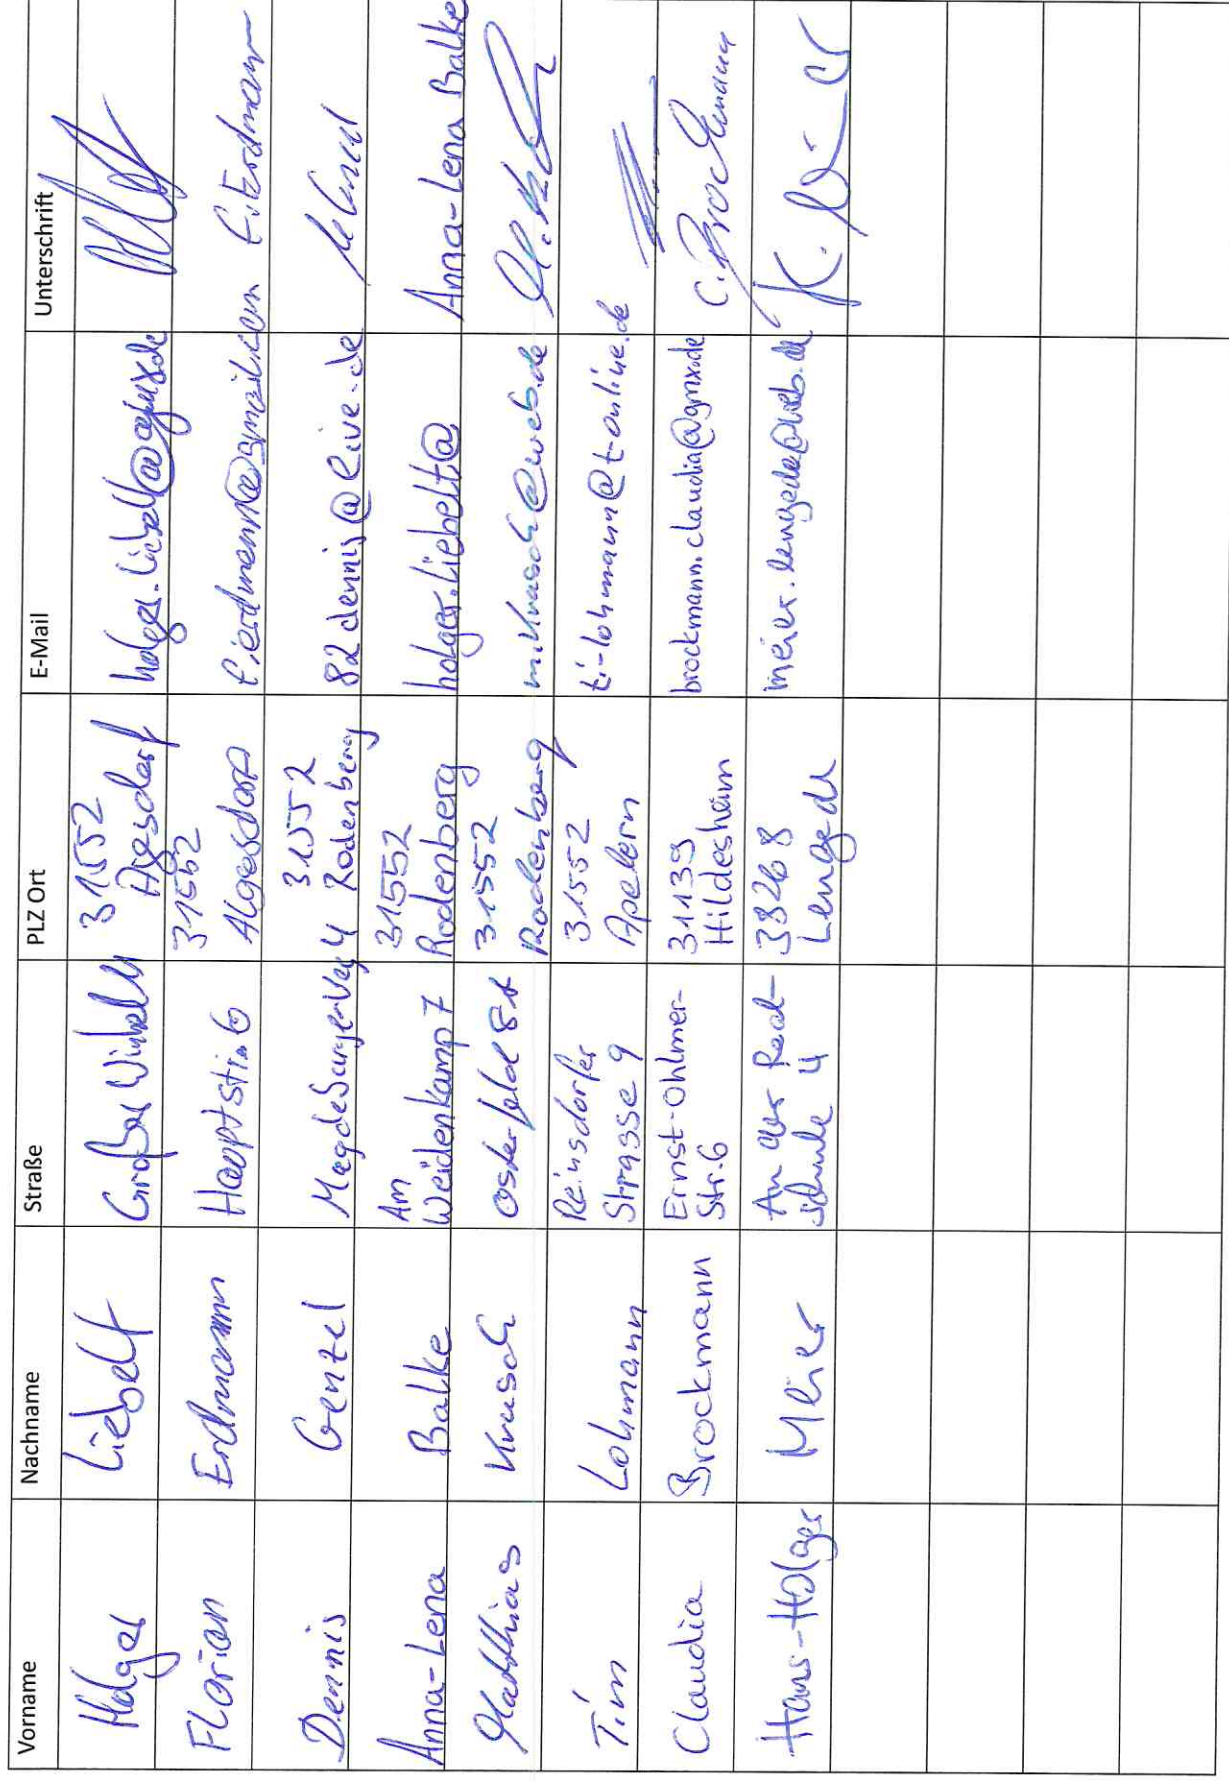 Vorname Nachname Straße PLZ Ort E-Mail Unterschrift
Holger Liebelt Großer Winkel 4 31552 Algesdorf
Florian Erdmann Hauptstr. 6 31552 Algesdorf f.erdmann@gmail.com f. Erdmann
Dennis Genzel Magdeburger Weg 4 31552 Rodenberg 82dennis@live.de
Anna-Lena Balke Am
Weidenkamp 7 31552
Rodenberg holger.liebelt@ Anna-Lena Balke
Matthias Knusch Osterfeld 8 31552
Rodenberg m.knusch@web.de
Tim Lohmann Reinsdorfer
Strasse 9 31552
Apelern ti-lohmann@t-online.de
Claudia Brockmann Ernst-Ohlmer-
Str. 6 31139
Hildesheim brockmann.claudia@gmx.de C. Brockmann
Hans-Holger Meier An der Real-
schule 4 38268
Lengede meier.lengede@web.de